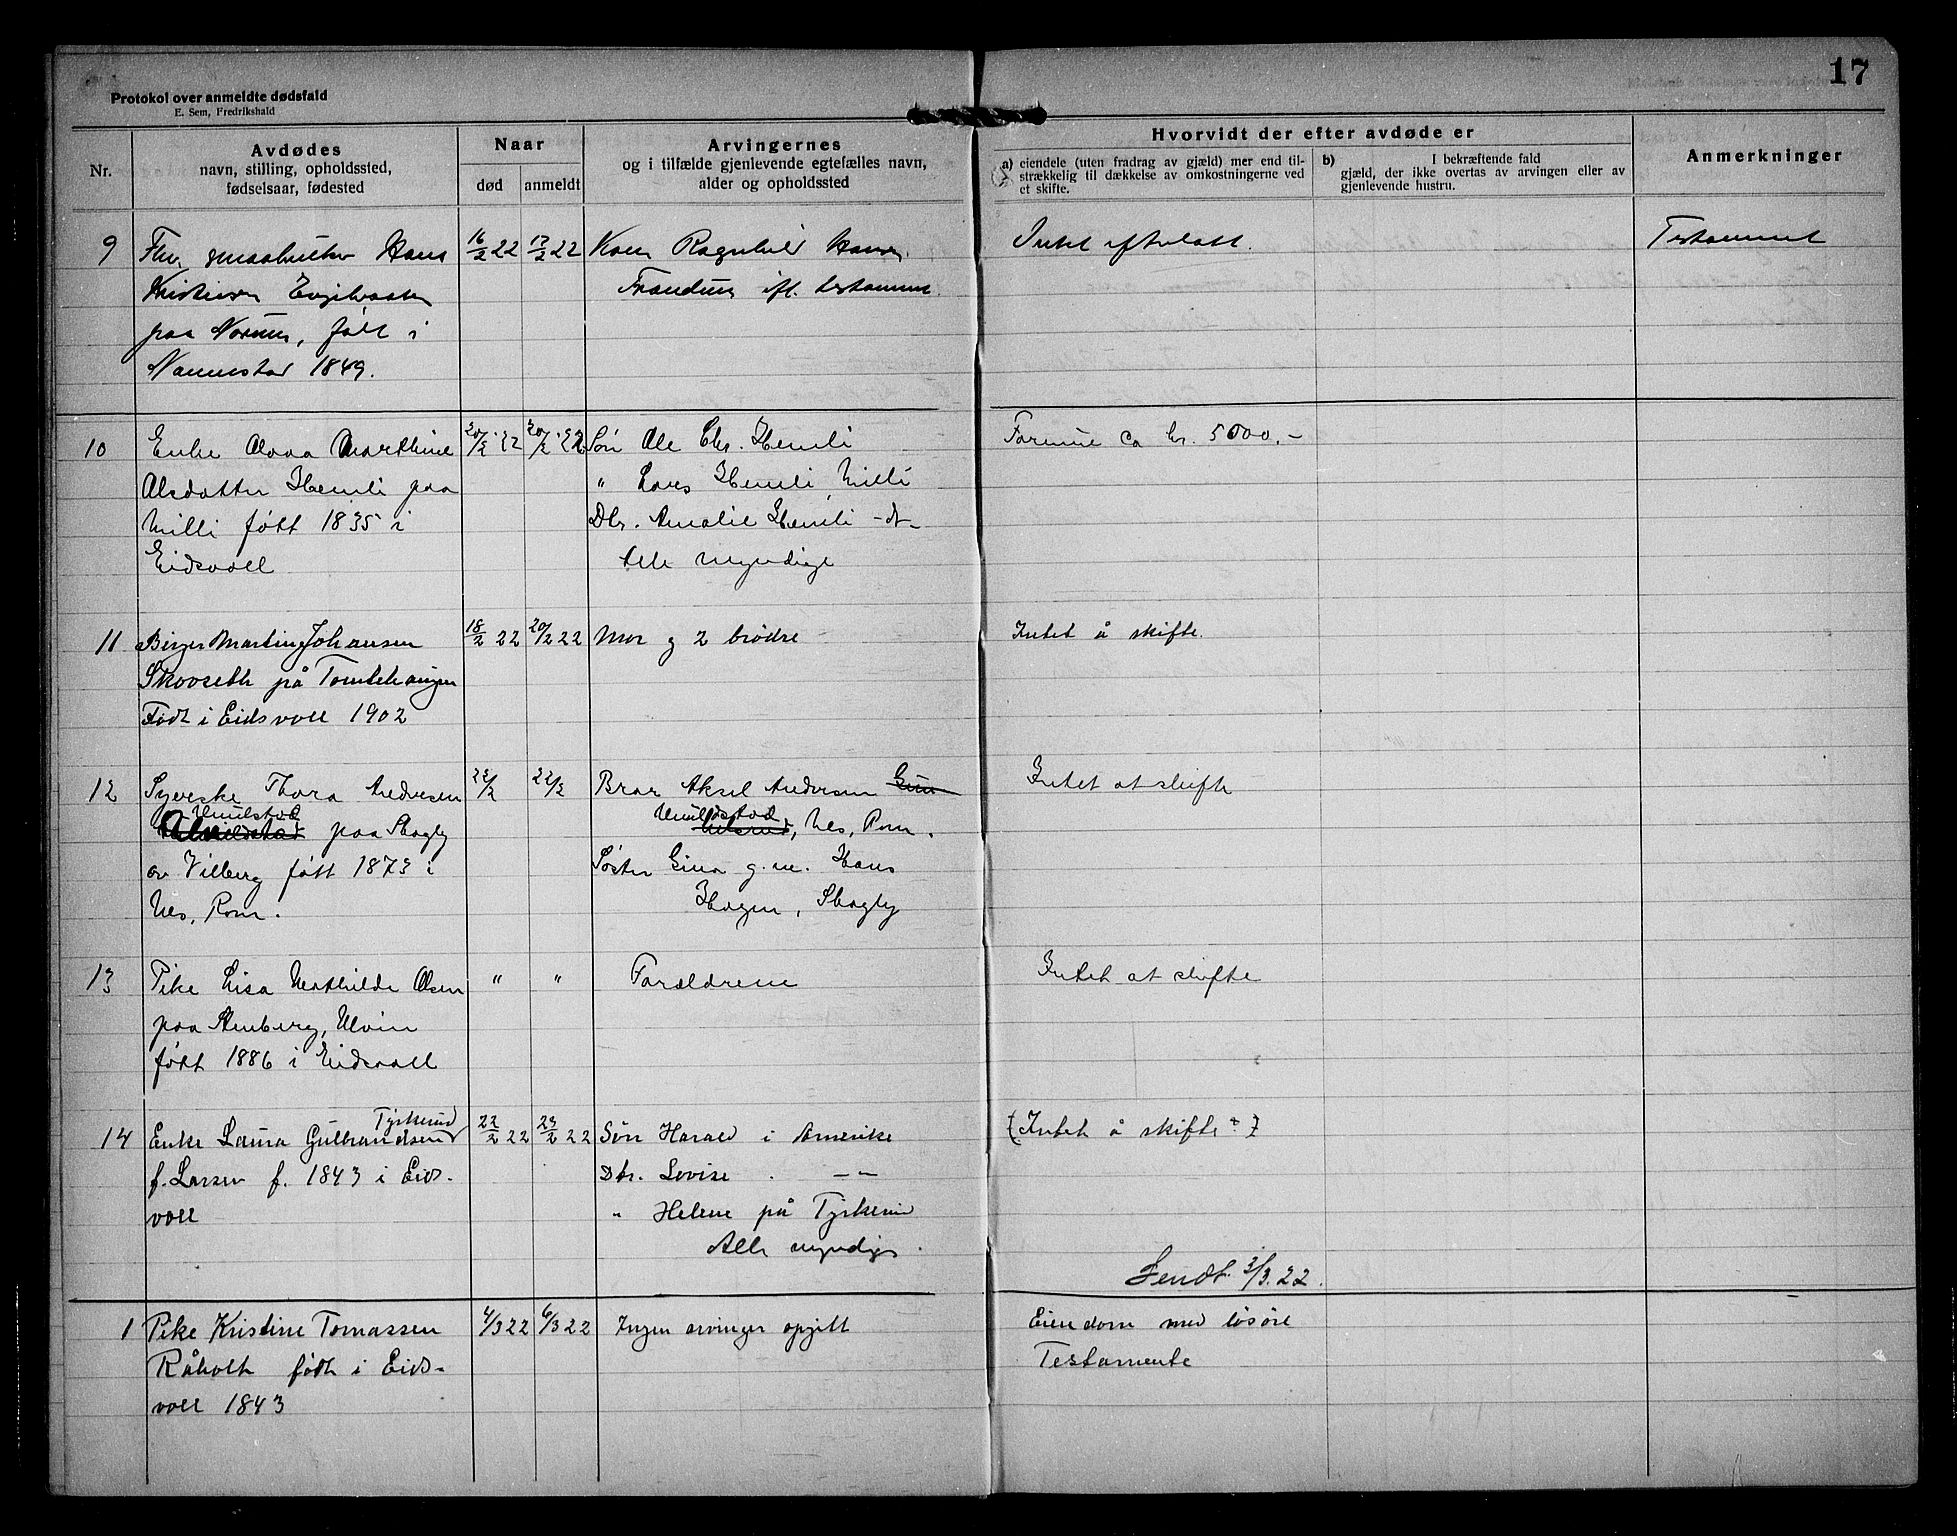 17
Protokol over anmeldte dødsfald
E. Sem, Fredrikshald
Nr.
Avdødes
navn, stilling, opholdssted,
fødselsaar, fødested
Naar
død
anmeldt
Arvingernes
og i tilfælde gjenlevende egtefælles navn,
alder og opholdssted
Hvorvidt der efter avdøde er
a) eiendele (uten fradrag av gjæld) mer end til-
strækkelig til dækkelse av omkostningerne ved
et skifte.
b) I bekræftende fald
gjæld, der ikke overtas av arvingen eller av
gjenlevende hustru.
Anmerkninger
9 Fhv. smaabruker Hans 16/2 22 17/2 22 Kone Ragnhild Hansen Intet efterlatt. Testament
Kristiansen
paa Norum, født i
Nannestad 1849.
10 Enke Marthine 20/2 22 20/2 22 Søn Ole Chr. Hemli Formue ca kr. 5000.-
Olsdatter Hemli paa " Lars Hemli Milli
Milli født 1835 i Dtr. Amalie Hemli -"-
Eidsvoll Alle myndige
11 Birger Martin Johansen 18/2 22 20/2 22 Mor og 2 brödre Intet å skifte.
Skovseth på Tomtehaugen
Født i Eidsvoll 1902
12 Syerske Thora Andresen 22/2 22/2 Bror Aksel Andersen Intet at skifte
paa Skogly Nes, Rom.
av Vilberg født 1873 i Søster Gina g.m. Hans
Nes, Rom. Hagen, Skogly
13 Pike Lisa Mathilde Olsen " " Forældrene Intet at skifte
paa Stenberg, Ulvin
født 1886 i Eidsvoll
14 Enke Laura Gulbrandsen Tyskerud 22/2 22 23/2 22 Søn Harald i Amerika (Intet å skifte)
f. Larsen f. 1843 i Eids- Dtr. Lovise -"-
voll " Helene på Tyskerud
Alle myndige.
Sendt 3/3.22.
1 Pike Kristine Tomassen 4/3 22 6/3 22 Ingen arvinger opgitt Eiendom med løsøre
Råholt født i Eids- Testamente
voll 1843